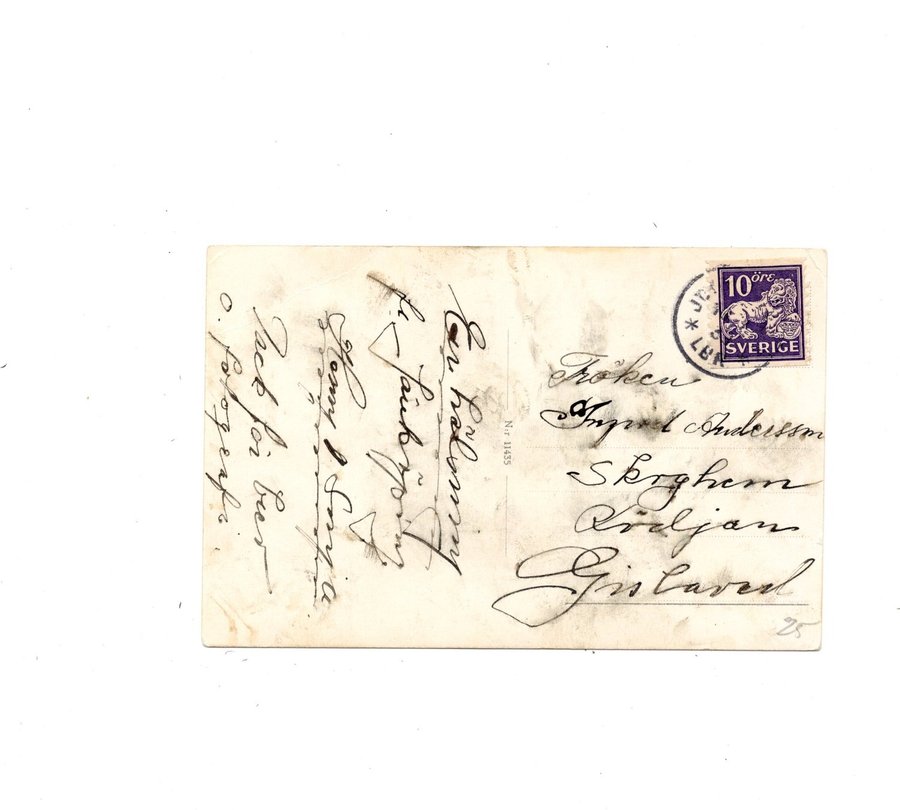 En hälsning
fr. Jönköping
Henny & Sonja
Tack för brev
o. fotografi.
Nr 11435
10 öre
SVERIGE
LBR
Fröken
Ingrid Andersson
Skoghem
Ködljan
Gislaved
25